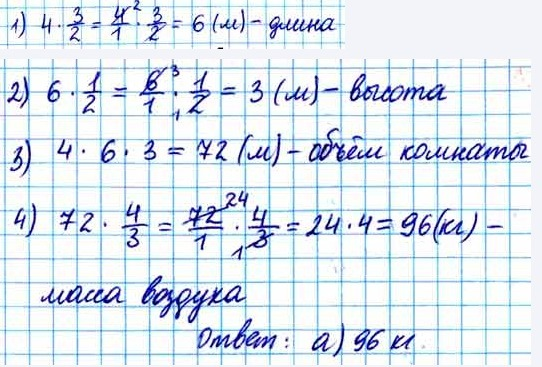 1) 4 · 3/2 = 4²/1 · 3/2 = 6 (м) – длина
2) 6 · 1/2 = 6³/1 · 1/2₁ = 3 (м) – высота
3) 4 · 6 · 3 = 72 (м) – объём комнаты
4) 72 · 4/3 = 72²⁴/1 · 4/3₁ = 24 · 4 = 96 (кг) –
масса воздуха
Ответ: а) 96 кг.